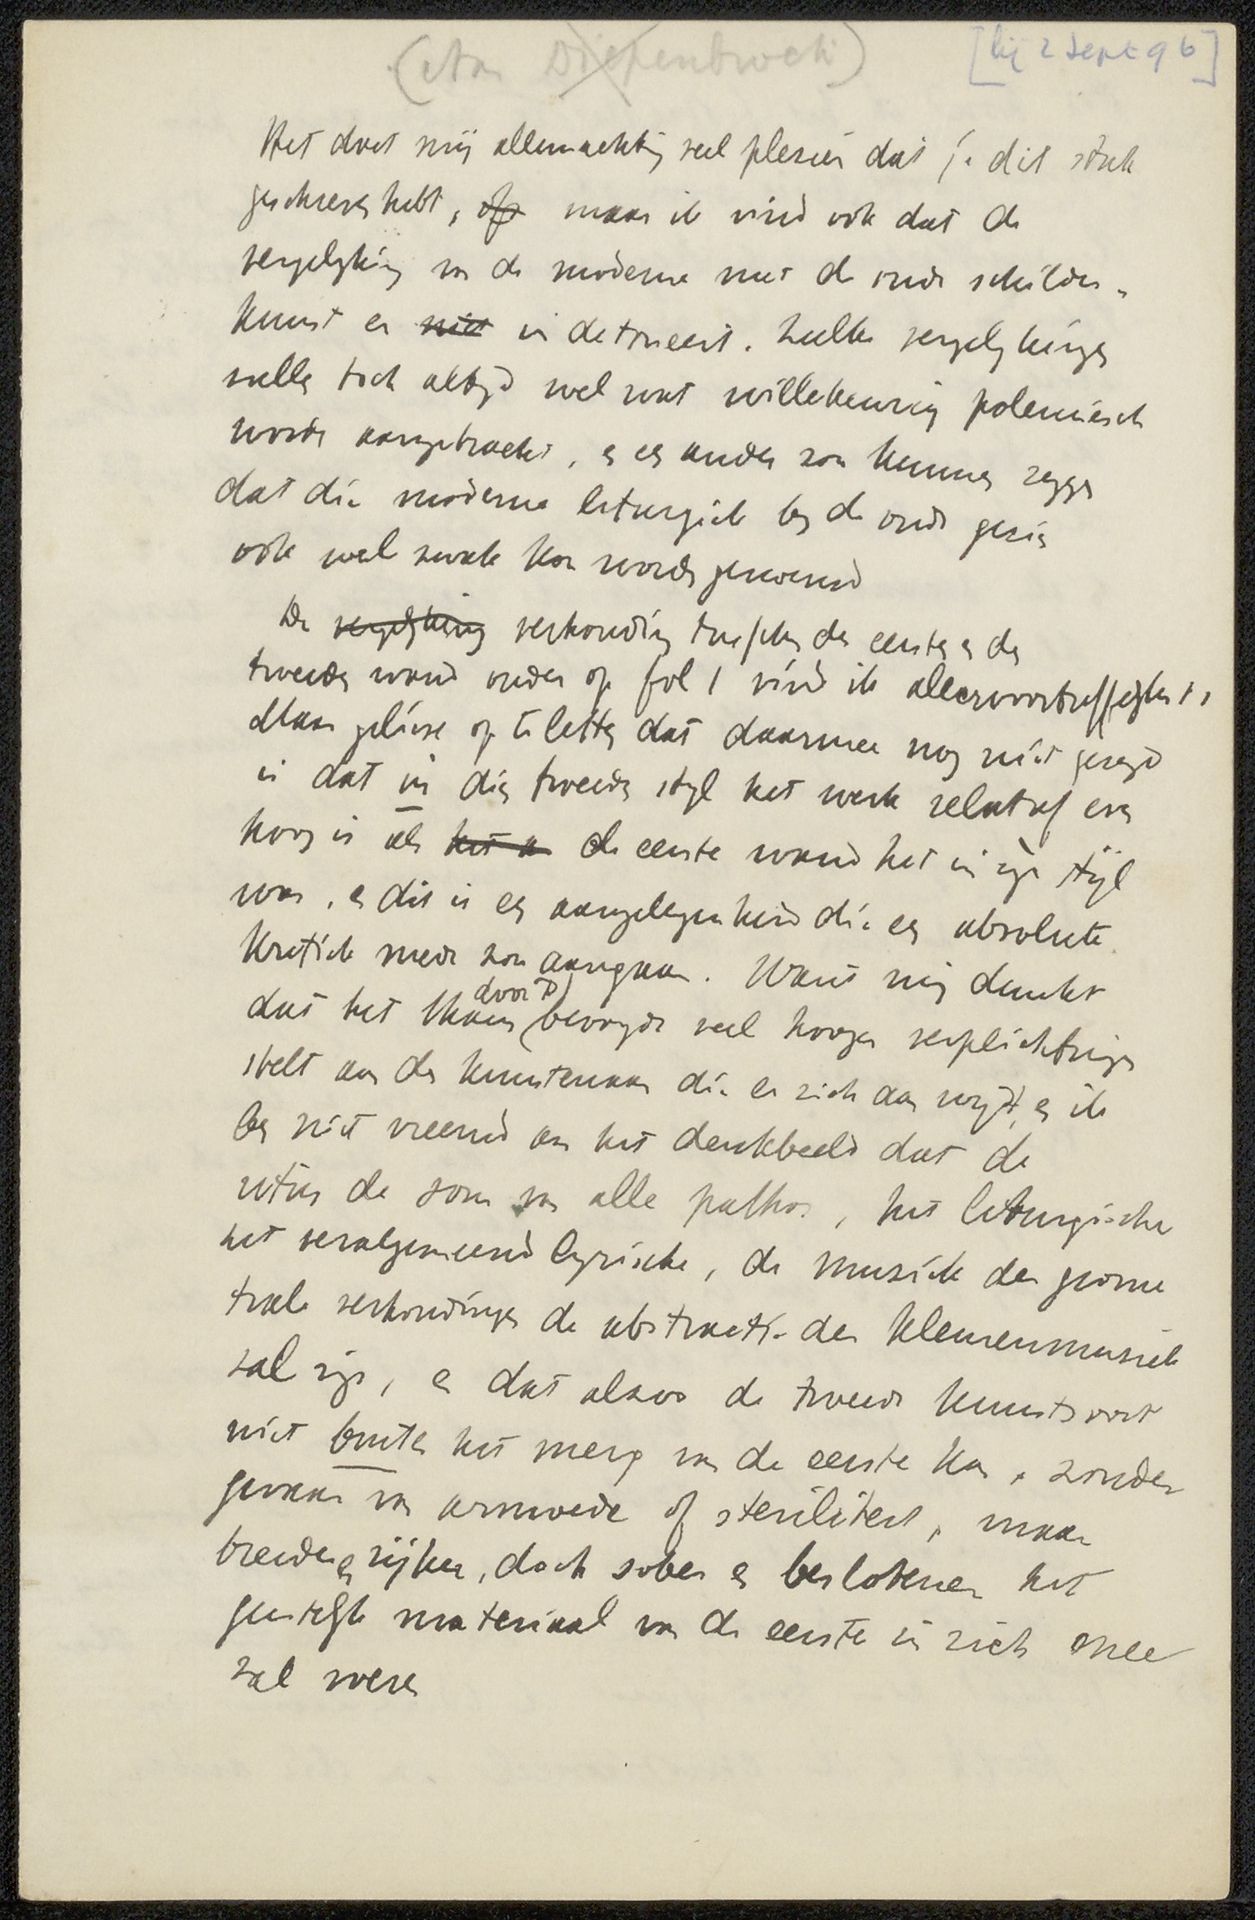 (Aan Diepenbrock)
[bij 2 Sept 96]
Het doet mij allemachtig veel plezier dat je dit stuk
geschreven hebt, of maar ik vind ook dat de
vergelyking van de moderne met de oude schilder-
kunst er niet in detoneert. Zulke vergelykingen
zullen toch altyd wel wat willekeurig polemiesch
worden aangebracht, en een ander zou kunnen zeggen
dat die moderne liturgiek by de oude gezien
ook wel zwak kon worden genoemd
De vergelyking verhouding tusschen den eersten en den
tweeden wand onder op fol 1 vind ik allervoortreffelykst,
Maar gelieve op te letten dat daarmee nog niet gezegd
is dat in dien tweeden styl het werk relatief even
hoog is als het de eerste wand het in zyn styl
was, en dit is een aangelegenheid die een absolute
kritiek mede zou aangaan. Want my dunkt
dat het thans door U beoogde veel hooger verplichtingen
stelt aan den kunstenaar die er zich aan wydt, en ik
ben niet vreemd aan het denkbeeld dat de
ritus de som van alle pathos, het liturgische
het veralgemeend lyrische, de muziek der geome
trale verhoudingen de abstractie der kleurenmuziek
zal zyn, en dat alzoo de tweede kunstsoort
niet buiten het merg van de eerste kan, zonder
gevaar van armoede of steriliteit, maar
breeder en rijker, doch sober en beslotener het
gestelgde materiaal van de eerste in zich mee
zal